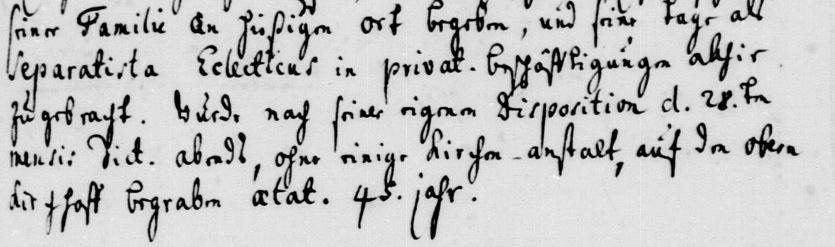 seiner Familie an hießigen ort begeben, und seine tage als
Separatista Eclecticus in privat-beschäfftigungen alhie
zugebracht. Wurde nach seiner eigenen Disposition d. 28.tn
mensis dict. abends, ohne einige Kirchen-anstalt, auf den obern
Kirchhoff begraben ætat. 45. jahr.